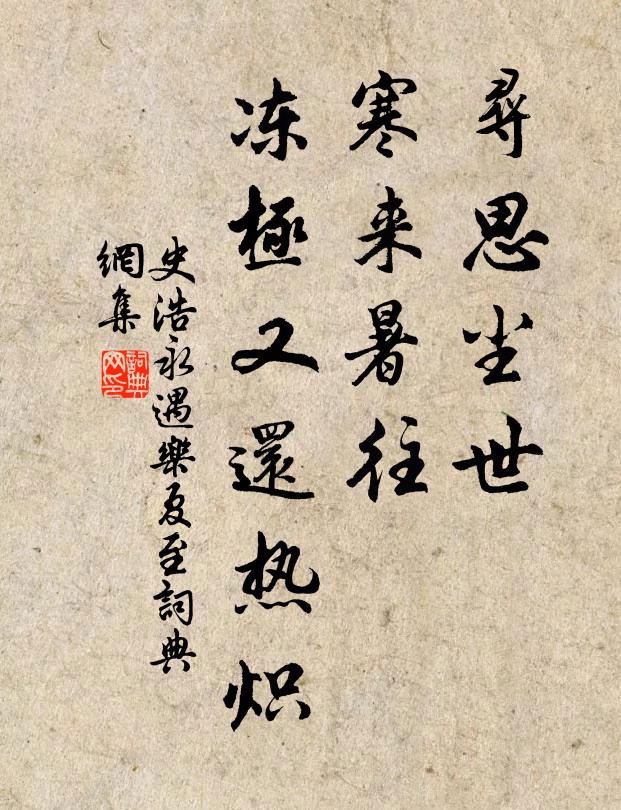 尋思尘世
寒来暑往
冻極又還热炽
史浩永遇樂夏至詞典
網集
詞典
网印